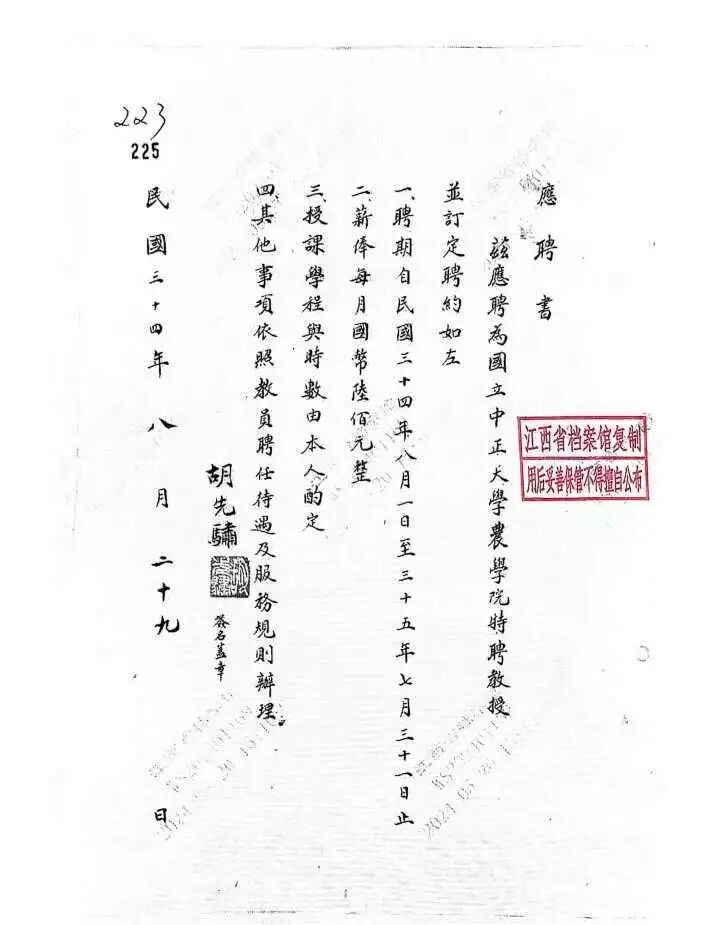 應聘書
茲應聘為國立中正大學農學院特聘教授
並訂定聘約如左
一、聘期自民國三十四年八月一日至三十五年七月三十一日止
二、薪俸每月國幣陸佰元整
三、授課學程與時數由本人酌定
四、其他事項依照教員聘任待遇及服務規則辦理
胡先驌
簽名蓋章
民國三十四年八月二十九日
223
225
江西省档案馆复制
用后妥善保管不得擅自公布